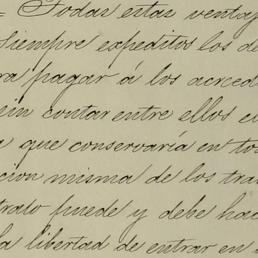 = Todas estas ventaj
Siempre expeditos los de
ra pagar á los acreed
sin contar entre ellos e
a que conservaría en to
ción misma de los tra
trato puede y debe hac
la libertad de entrar en